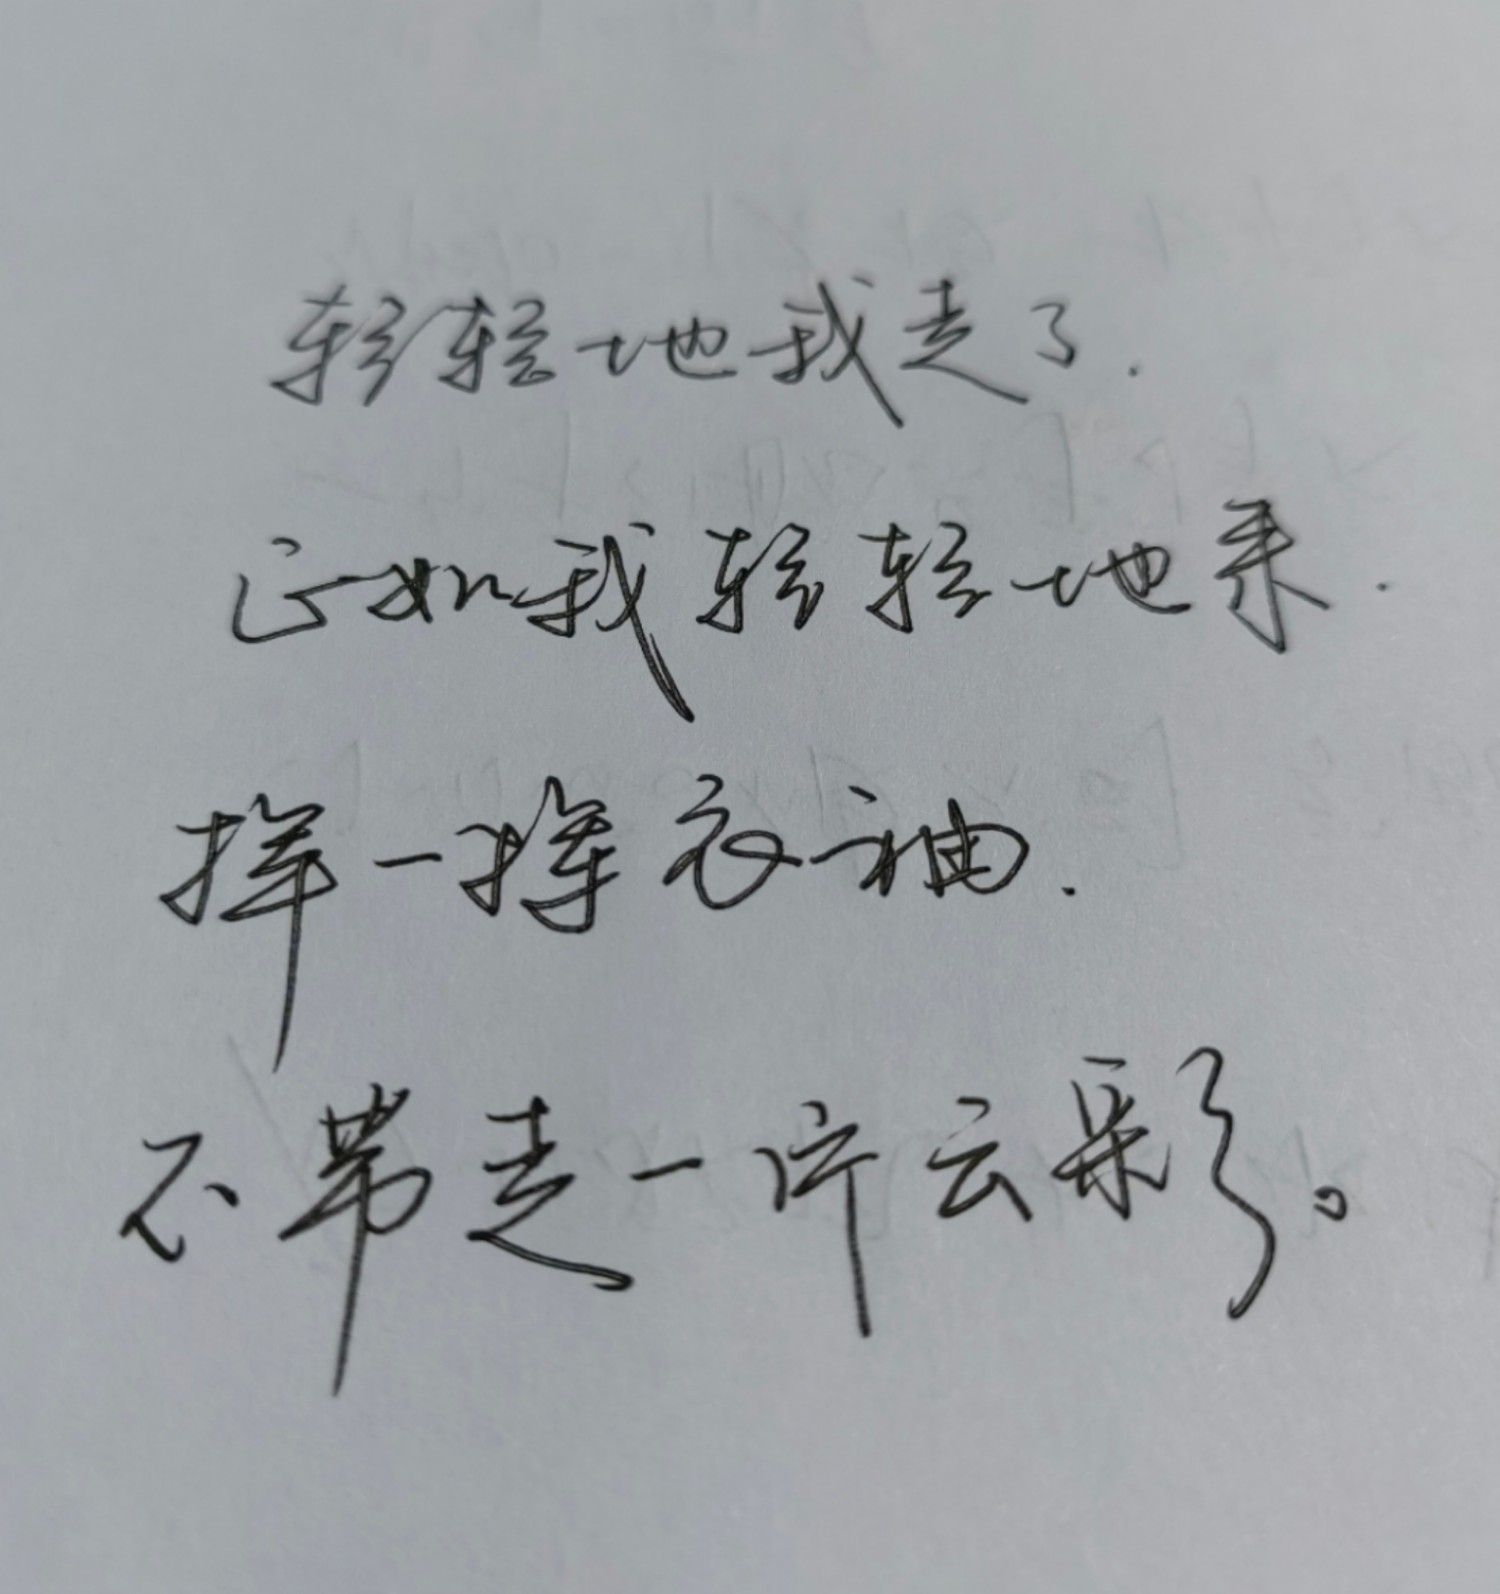 轻轻地我走了.
正如我轻轻地来.
挥一挥衣袖.
不带走一片云彩。